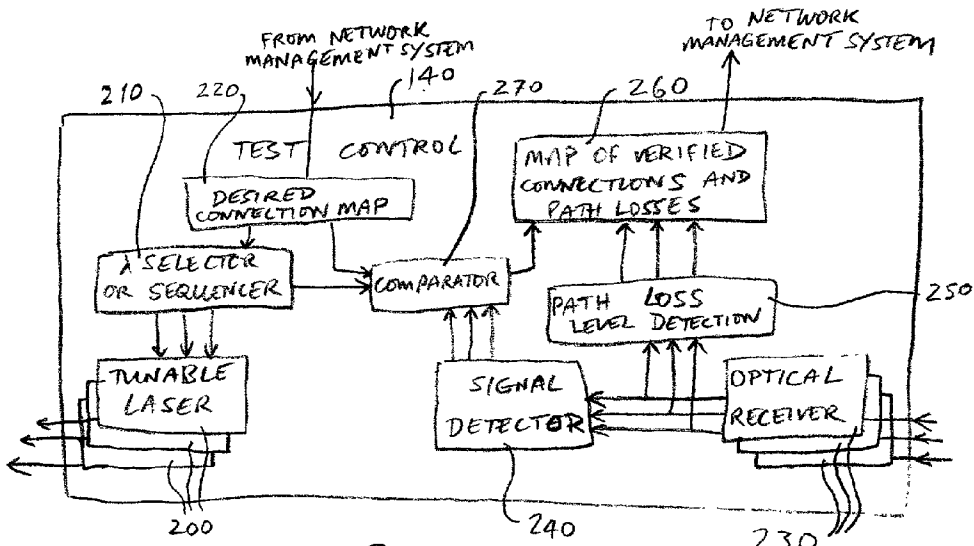 FROM NETWORK
MANAGEMENT SYSTEM
TO NETWORK
MANAGEMENT SYSTEM
140
210
220
270
260
TEST CONTROL
DESIRED
CONNECTION MAP
MAP OF VERIFIED
CONNECTIONS AND
PATH LOSSES
λ SELECTOR
OR SEQUENCER
COMPARATOR
PATH LOSS
LEVEL DETECTION
250
TUNABLE
LASER
SIGNAL
DETECTOR
OPTICAL
RECEIVER
200
240
230